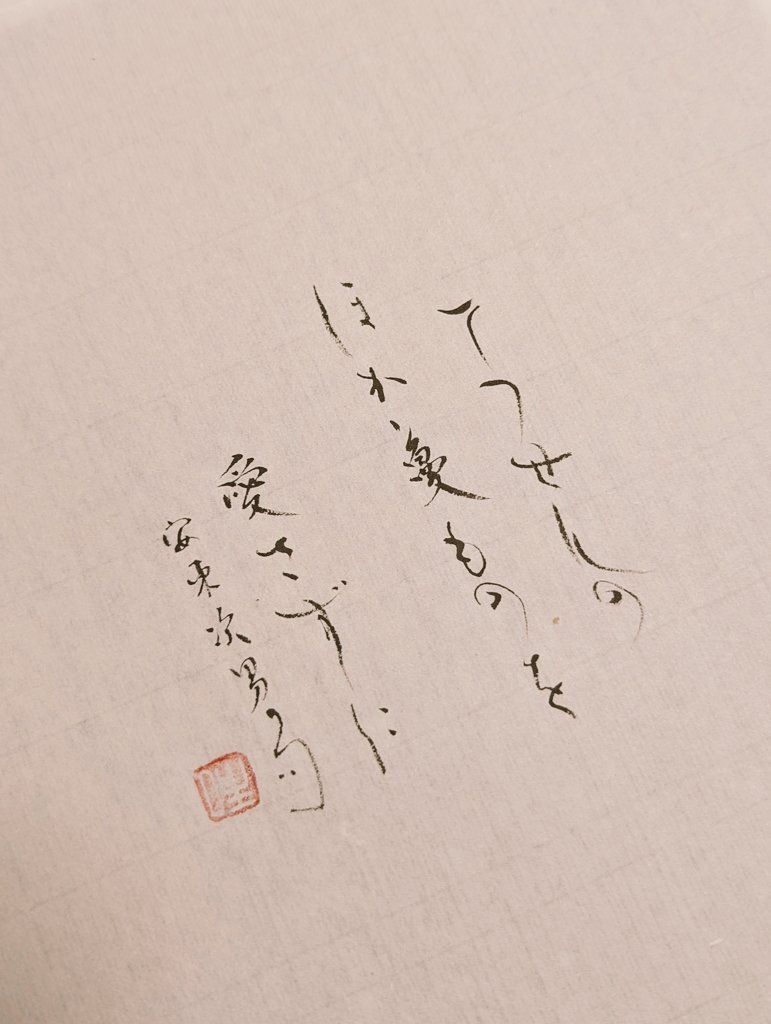 てつせんの
ほか蔓ものを
愛さずに
安東次男句